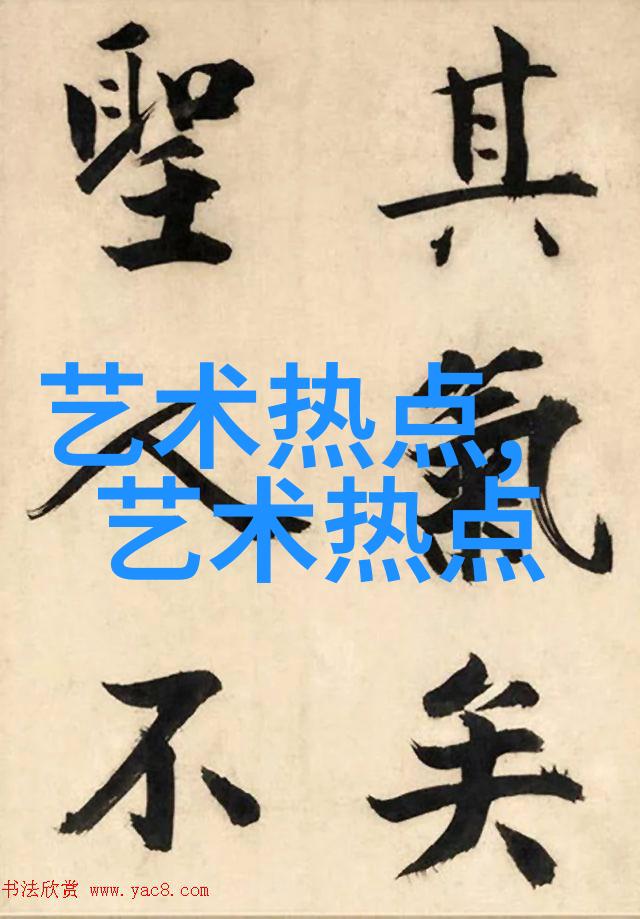 其氣矣
聖人不
艺术热点,
艺术热点
书法欣赏 www.yac8.com